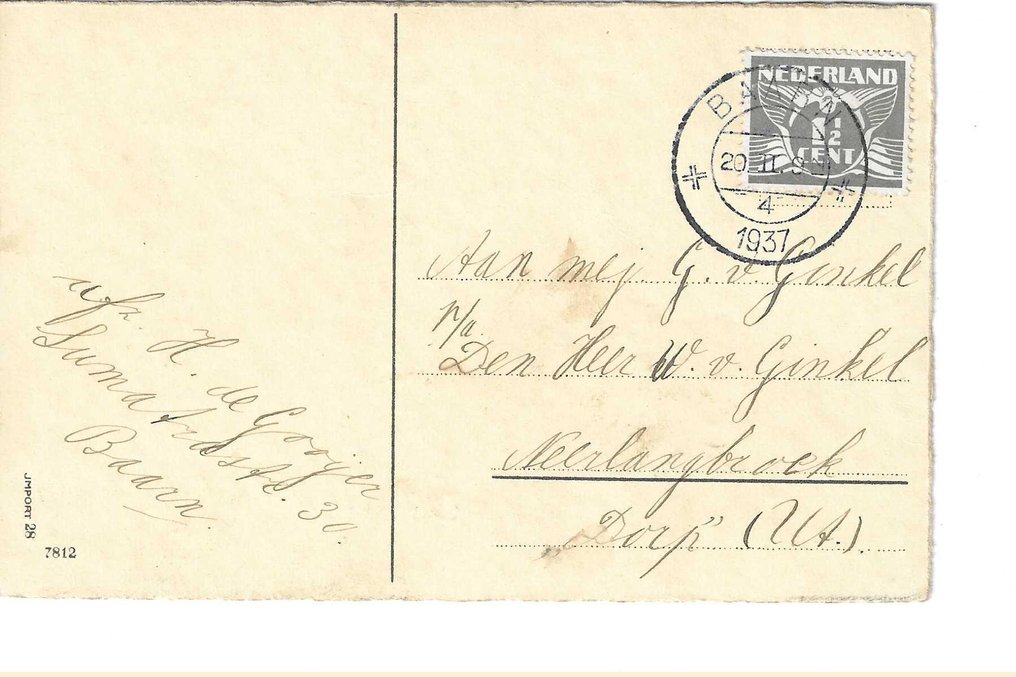 NEDERLAND
1½
CENT
BAARN
20.II.9
4
1937
Aan mej G. v Ginkel
p/a.
Den Heer W. v. Ginkel
Neerlangbroek
„Dorp” (Ut.).
afz. H. de Gooyer
Sumatrastr. 30.
Baarn.
JMPORT 28
7812